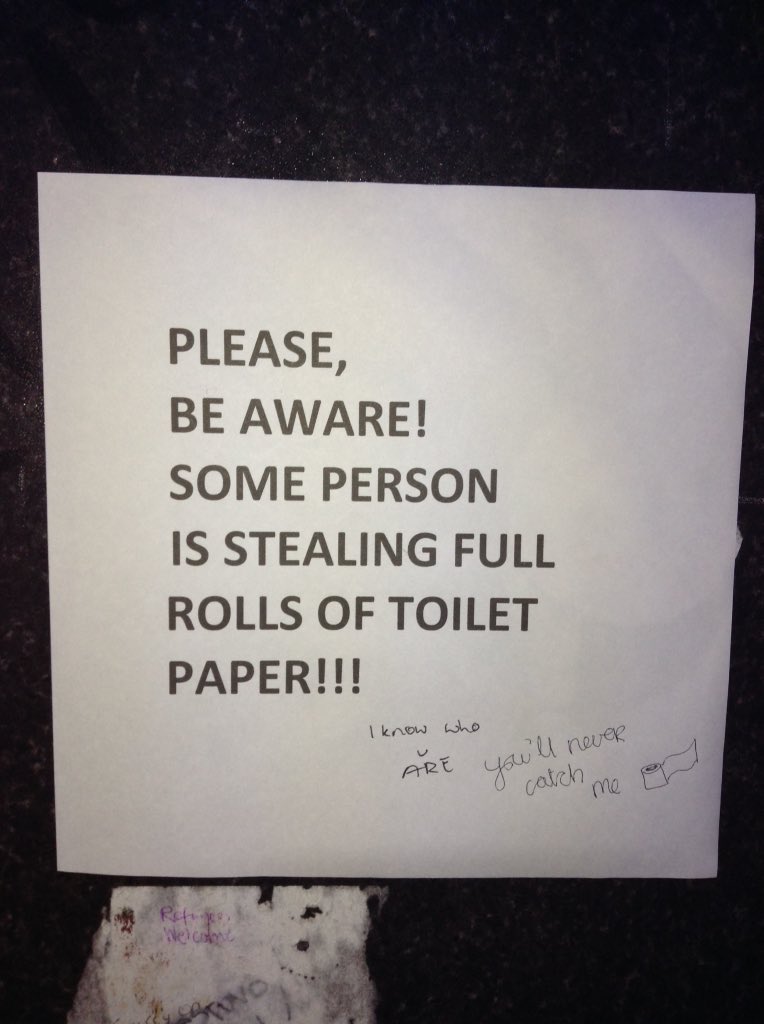 PLEASE,
BE AWARE!
SOME PERSON
IS STEALING FULL
ROLLS OF TOILET
PAPER!!!
I know who
ARE
you'll never
catch
me
Refugees
Welcome